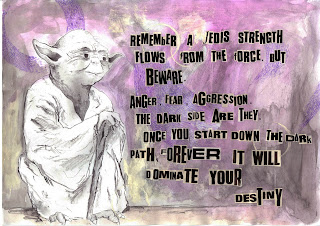 REMEMBER A JEDIS STRENGTH
FLOWS FROM THE FORCE. BUT
BEWARE.
ANGER, FEAR, AGGRESSION.
THE DARK SIDE ARE THEY.
ONCE YOU START DOWN THE DARK
PATH, FOREVER IT WILL
DOMINATE YOUR
DESTINY